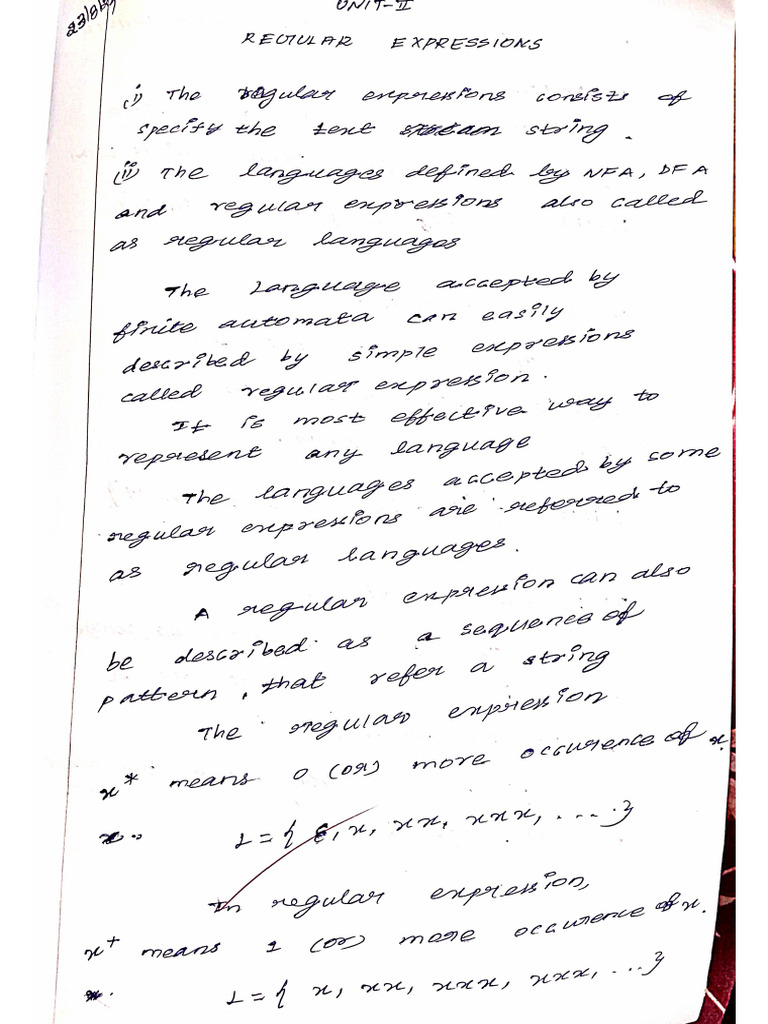 UNIT-II
REGULAR EXPRESSIONS
(i) The regular expressions consists of
specify the text string.
(ii) The languages defined by NFA, DFA
and regular expressions also called
as regular languages
The Language accepted by
finite automata can easily
described by simple expressions
called regular expression.
It is most effective way to
represent any language
The languages accepted by some
regular expressions are referred to
as regular languages.
A regular expression can also
be described as a sequence of
pattern, that refer a string
The regular expression
x* means 0 (or) more occurence of x.
L = { ε, x, xx, xxx, .... }
In regular expression,
x+ means 1 (or) more occurence of x.
L = { x, xx, xxx, xxx, ... }